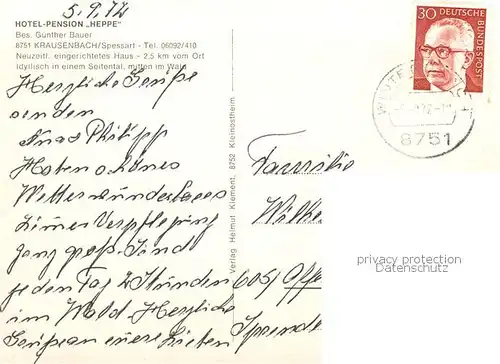 5.9.72
HOTEL-PENSION „HEPPE"
Bes. Günther Bauer
8751 KRAUSENBACH/Spessart - Tel. 06092/410
Neuzeitl. eingerichtetes Haus - 2,5 km vom Ort
Idyllisch in einem Seitental, mitten im Wald
30
DEUTSCHE BUNDESPOST
8751
Herzliche Grüße
senden
Philipp
Haben schönes
Wetter wunderbares
Zimmer Verpflegung
ganz groß. Sind
jeden Tag 2 Stunden
im Wald. Herzliche
Verlag Helmut Klement, 8752 Kleinostheim
Familie
605 Offe
privacy protection
Datenschutz